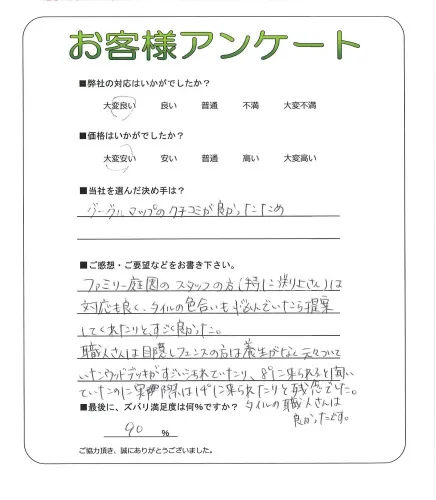 お客様アンケート
■弊社の対応はいかがでしたか？
大変良い 良い 普通 不満 大変不満
■価格はいかがでしたか？
大変安い 安い 普通 高い 大変高い
■当社を選んだ決め手は？
グーグルマップのクチコミが良かったため
■ご感想・ご要望などをお書き下さい。
ファミリー庭園のスタッフの方(特に渕上さん)は
対応も良く、タイルの色合いも悩んでいたら提案
してくれたりと、すごく良かった。
職人さんは目隠しフェンスの方は養生がなく元々ついて
いたウッドデッキがすごい られていたり、8時に来られると聞い
ていたのに実際は1 に来られたりと残念でした。
■最後に、ズバリ満足度は何％ですか？ タイルの職人さんは
良かったです。
90 %
ご協力頂き、誠にありがとうございました。